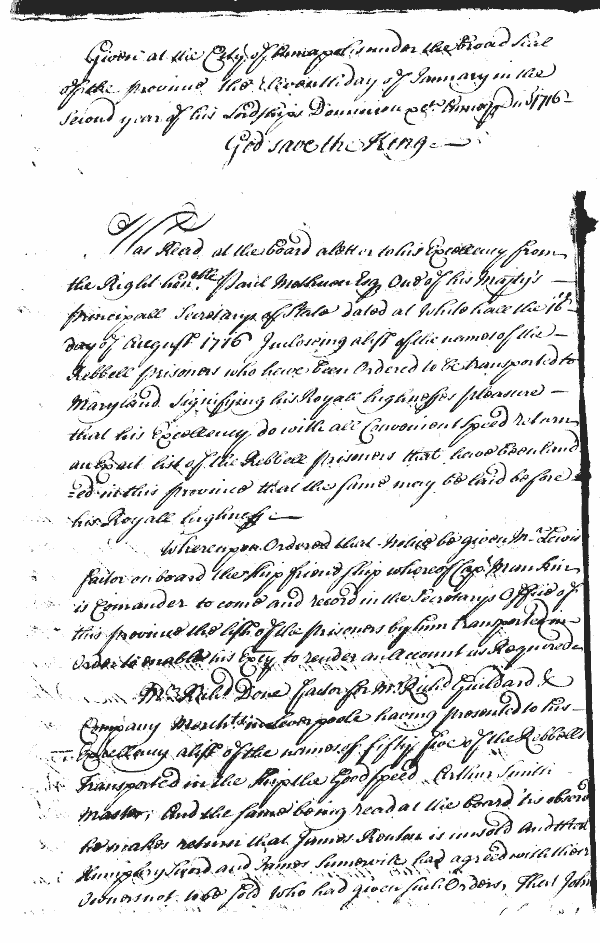 Given at the City of Annapolis under the broad Seal
of the province the Eleventh day of January in the
Second year of his Lordships Dominion &ct Annoq Dni 1716
God save the King
Was Read at the board a letter to his Excellency from
the Right hon.ble Paul Methuen Esq One of his Majtys
principall Secretarys of State dated at Whitehall the 16th
day of August 1716 Inclosing a list of the names of the
Rebbell prisoners who have been Ordered to be transported to
Maryland Signifying his Royall highnesses pleasure
that his Excellency do with all Convenient speed return
an Exact list of the Rebbell prisoners that have been land
=ed in this province that the same may be laid before
his Royall highness
Whereupon Ordered that Notice be given Mr Lewis
factor on board the ship friendship whereof Capt Mankin
is Comander to come and record in the Secretarys Office of
this province the list of the prisoners by him transported in
Order to enable his Excy to render an Account as Required
Mr Richd Done factor for Mr Richd Guildard &
Company Merchts in Leverpoole having presented to his
Excellency a list of the names of fifty five of the Rebbells
Transported in the ship the Good speed Arthur Smith
Master; And the same being read at the board tis observd
he makes return that James Renton is unsold and that
Humphry Sword and James Sumervile had agreed with their
Owners not to be sold who had given such Orders, That John